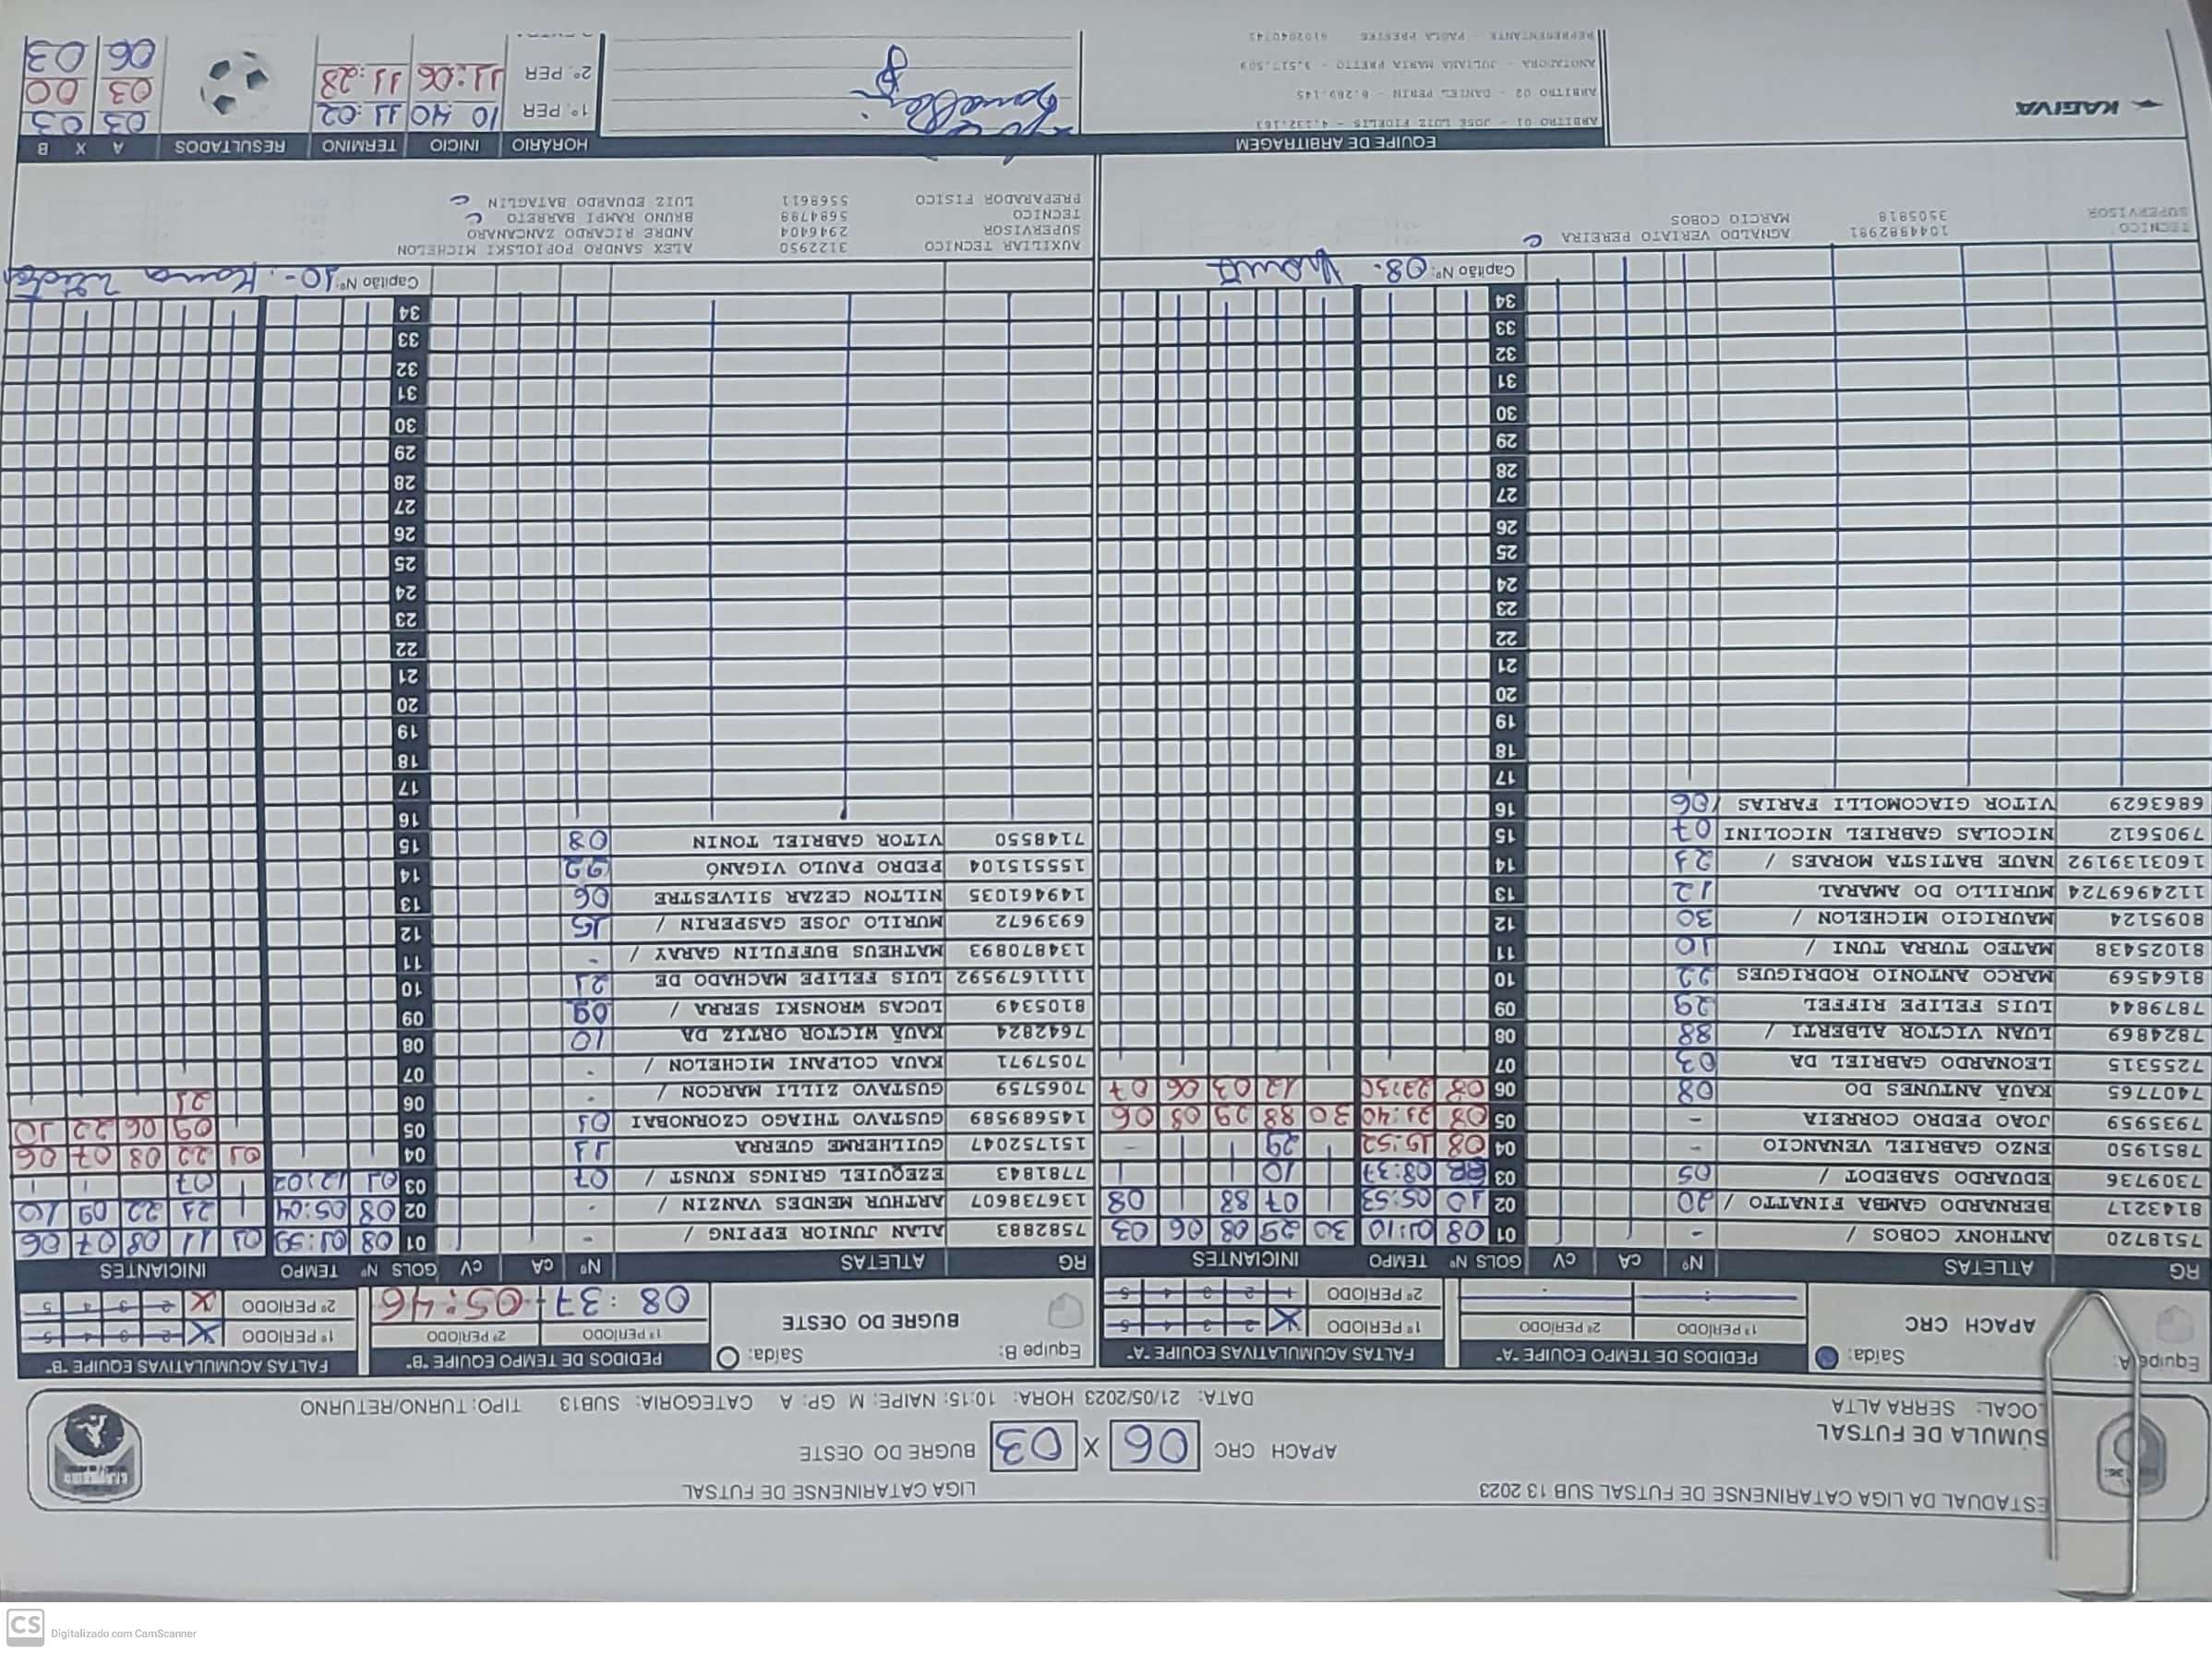 ESTADUAL DA LIGA CATARINENSE DE FUTSAL SUB 13 2023
LIGA CATARINENSE DE FUTSAL
SÚMULA DE FUTSAL
APACH CRC 06 X 03 BUGRE DO OESTE
LOCAL: SERRA ALTA
DATA: 21/05/2023 HORA: 10:15: NAIPE: M GP: A CATEGORIA: SUB13 TIPO: TURNO/RETURNO
Equipe A: Saída:
APACH CRC
PEDIDOS DE TEMPO EQUIPE "A"
1º PERÍODO 2º PERÍODO
FALTAS ACUMULATIVAS EQUIPE "A"
1º PERÍODO X 2 3 4 5
2º PERÍODO 1 2 3 4 5
RG ATLETAS Nº CA CV GOLS Nº TEMPO INICIANTES
7518720 ANTHONY COBOS / - 01 08 01:10 30 29 08 06 03
8143217 BERNARDO GAMBA FINATTO / 20 02 10 05:53 07 88 08
7309736 EDUARDO SABEDOT / 05 03 08:37 10
7851950 ENZO GABRIEL VENANCIO - 04 08 15:52 29
7935959 JOAO PEDRO CORREIA - 05 08 21:40 30 88 29 08 06
7407765 KAUÃ ANTUNES DO 08 06 08 12 03 06 07
7255315 LEONARDO GABRIEL DA 03 07
7824869 LUAN VICTOR ALBERTI / 88 08
7879844 LUIS FELIPE RIFFEL 29 09
8164569 MARCO ANTONIO RODRIGUES 22 10
81025438 MATEO TURRA TUNI / 10 11
8095124 MAURICIO MICHELON / 30 12
1124969724 MURILLO DO AMARAL 12 13
1603139192 NAUE BATISTA MORAES / 21 14
7905612 NICOLAS GABRIEL NICOLINI 07 15
6863629 VITOR GIACOMOLLI FARIAS / 06 16
17
18
19
20
21
22
23
24
25
26
27
28
29
30
31
32
33
34
Capitão Nº: 08.
TECNICO 1044882981 AGNALDO VERIATO PEREIRA C
SUPERVISOR 3505818 MARCIO COBOS
Equipe B: Saída:
BUGRE DO OESTE
PEDIDOS DE TEMPO EQUIPE "B"
1º PERÍODO 2º PERÍODO
08:37 05:46
FALTAS ACUMULATIVAS EQUIPE "B"
1º PERÍODO X 2 3 4 5
2º PERÍODO X 2 3 4 5
RG ATLETAS Nº CA CV GOLS Nº TEMPO INICIANTES
7582883 ALAN JUNIOR EPPING / - 01 08 01:59 01 11 08 07 06
136738607 ARTHUR MENDES VANZIN / - 02 08 05:04 21 22 09 10
7781843 EZEQUIEL GRINGS KUNST / 07 03 01 12:02 07
151752047 GUILHERME GUERRA 11 04 01 22 08 07 06
145689589 GUSTAVO THIAGO CZORNOBAI 01 05 09 06 22 10
7065759 GUSTAVO ZILLI MARCON / - 06 21
7057971 KAUA COLPANI MICHELON / - 07
7642824 KAUÃ WICTOR ORTIZ DA 10 08
8105349 LUCAS WRONSKI SERRA / 09 09
1111679592 LUIS FELIPE MACHADO DE 21 10
134870893 MATHEUS BUFFULIN GARAY / - 11
6939672 MURILO JOSE GASPERIN / 15 12
149461035 NILTON CEZAR SILVESTRE 06 13
155515104 PEDRO PAULO VIGANÓ 22 14
7148550 VITOR GABRIEL TONIN 08 15
16
17
18
19
20
21
22
23
24
25
26
27
28
29
30
31
32
33
34
Capitão Nº: 10-
AUXILIAR TECNICO 3122950 ALEX SANDRO POPIOLSKI MICHELON
SUPERVISOR 2946404 ANDRE RICARDO ZANCANARO
TECNICO 5684798 BRUNO RAMPI BARRETO C
PREPARADOR FISICO 5568611 LUIZ EDUARDO BATAGLIN C
KAGIVA
EQUIPE DE ARBITRAGEM
ARBITRO 01 - JOSE LUIZ FIDELIS - 4.132.163
ARBITRO 02 - DANIEL PERIN - 6.269.145
ANOTADORA - JULIANA MARIA PRETTO - 3.517.509
REPRESENTANTE - PAOLA PRESTES 6102040743
HORÁRIO INICIO TERMINO RESULTADOS A X B
1º. PER 10 40 11:02 03 03
2º. PER 11:06 11:28 03 00
06 03
CS Digitalizado com CamScanner